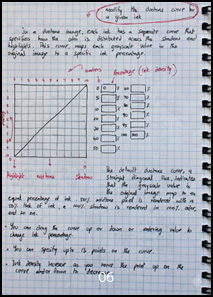 modify the duotone curve for
a given ink
In a duotone image, each ink has a separate curve that
specifies how the color is distributed across the shadows and
highlights. This curve maps each grayscale value in the
original image to a specific ink percentage.
percentage (ink density)
highlight
midtone
shadow
The default duotone curve, a
straight diagonal line, indicates
that the grayscale value in
original image maps to an
equal percentage of ink. 50% midtone pixel is rendered with a
50% tint of ink, a 100% shadow is rendered in 100% color,
and so on.
• You can drag the curve up or down or entering value to
change ink percentage.
• You can specify up to points on the curve.
• Ink density increase as you move the point up on the
curve down to decrease
06